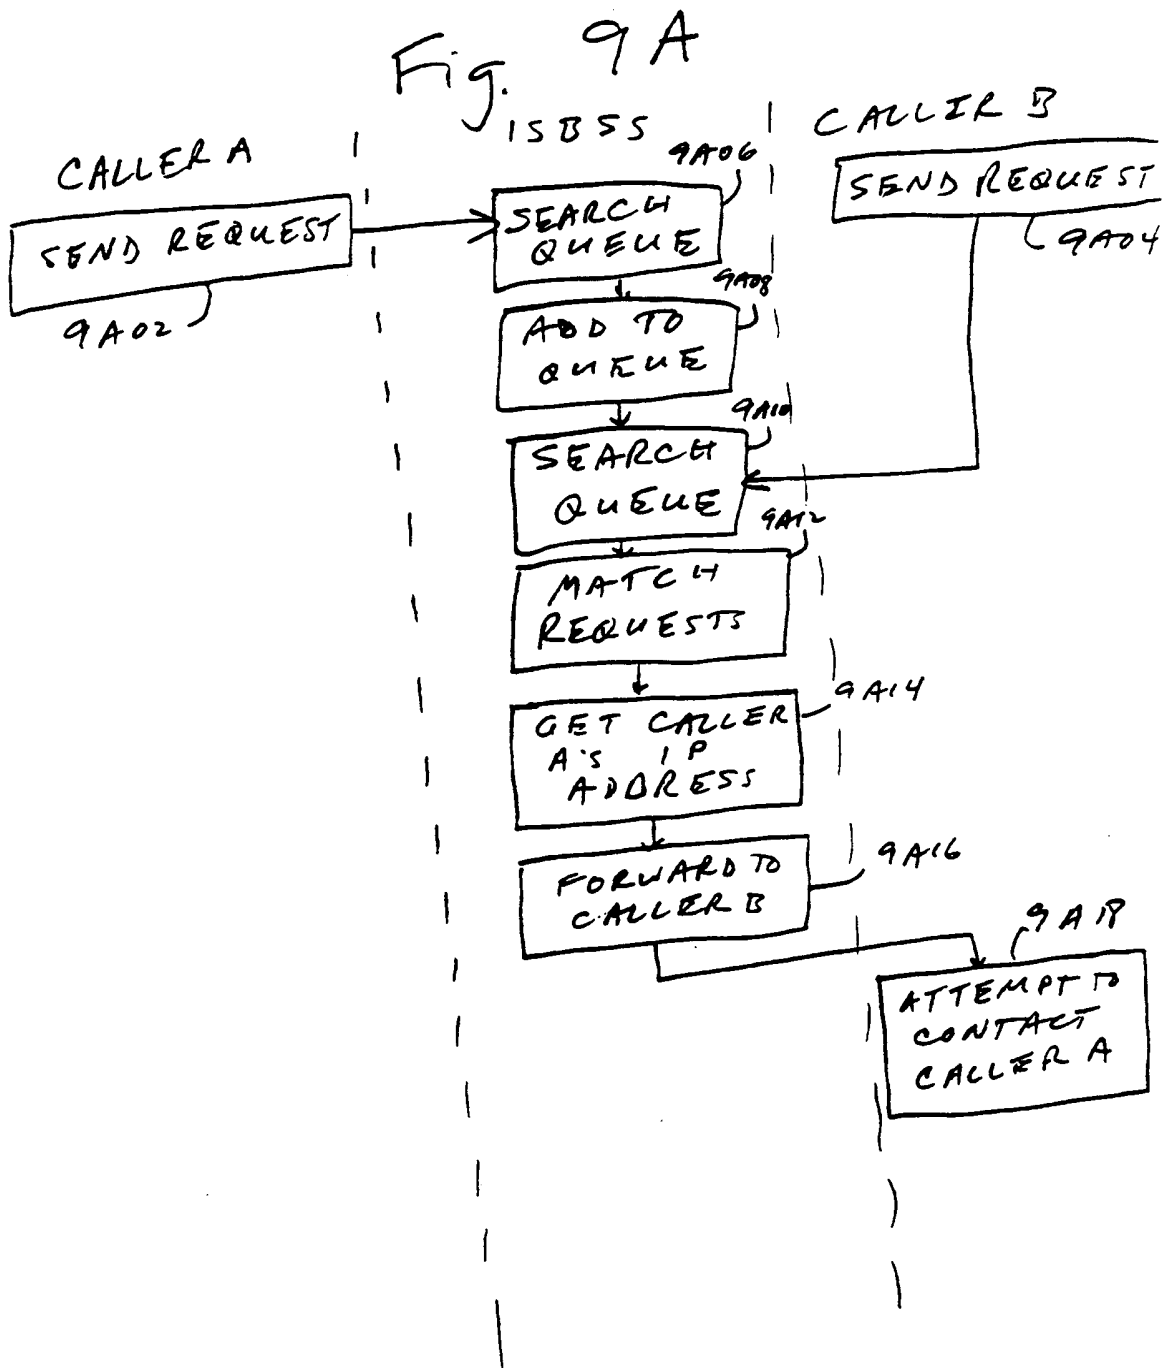 Fig. 9A
CALLER A
ISBSS
CALLER B
SEND REQUEST
9A02
9A06
SEARCH
QUEUE
SEND REQUEST
9A04
9A08
ADD TO
QUEUE
9A10
SEARCH
QUEUE
9A12
MATCH
REQUESTS
9A14
GET CALLER
A's IP
ADDRESS
9A16
FORWARD TO
CALLER B
9A18
ATTEMPT TO
CONTACT
CALLER A